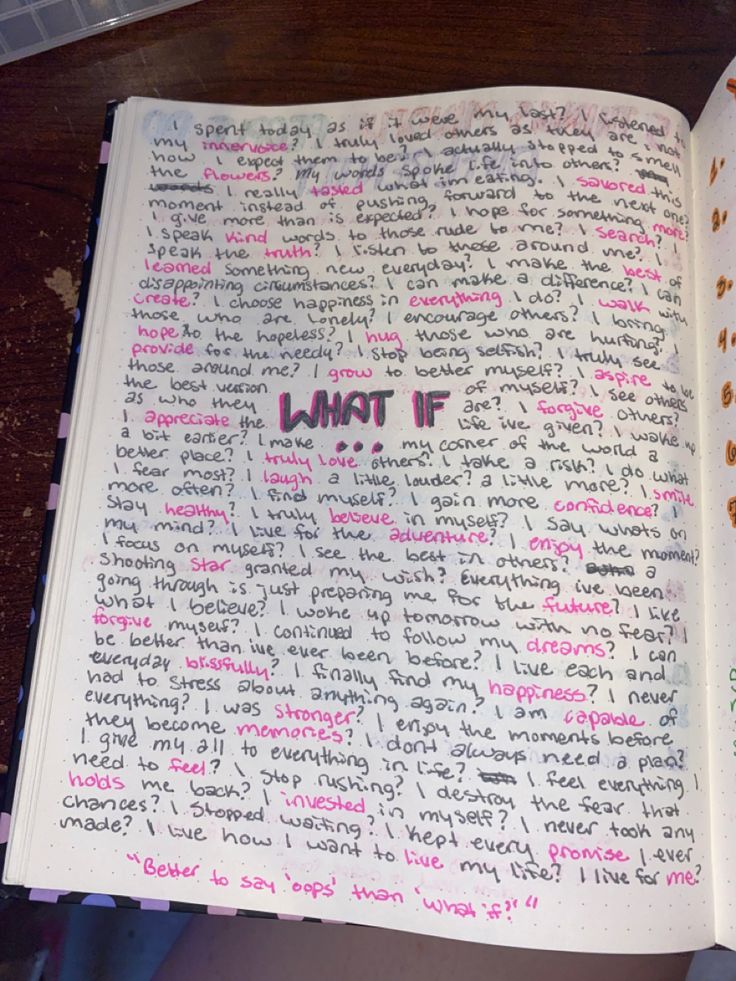 I spent today as if it were my last? I listened to
my innervoice? I truly loved others as they are & not
how I expect them to be? I actually stopped to smell
the flowers? My words spoke life into others?
I really tasted what im eating. I savored this
moment instead of pushing forward to the next one?
I give more than is expected? I hope for something more?
I speak kind words to those rude to me? I search? I
speak the truth? I listen to those around me? I
learned something new everyday? I make the best of
disappointing circumstances? I can make a difference? I can
create? I choose happiness in everything I do? I walk with
those who are lonely? I encourage others? I bring
hope to the hopeless? I hug those who are hurting? I
provide for the needy? I stop being selfish? I truly see
those around me? I grow to better myself? I aspire to be
the best version of myself? I see others
as who they WHAT IF are? I forgive others?
I appreciate the life ive given? I wake up
a bit earlier? I make ... my corner of the world a
better place? I truly love others? I take a risk? I do what
I fear most? I laugh a little louder? a little more? I smile
more often? I find myself? I gain more confidence? I
stay healthy? I truly believe in myself? I say whats on
my mind? I live for the adventure? I enjoy the moment?
I focus on myself? I see the best in others? a
shooting star granted my wish? Everything ive been
going through is just preparing me for the future? I like
what I believe? I woke up tomorrow with no fear? I
forgive myself? I continued to follow my dreams? I can
be better than ive ever been before? I live each and
everyday blissfully? I finally find my happiness? I never
had to stress about anything again? I am capable of
everything? I was stronger? I enjoy the moments before
they become memories? I dont always need a plan?
I give my all to everything in life? I feel everything I
need to feel? I stop rushing? I destroy the fear that
holds me back? I invested in myself? I never took any
chances? I stopped waiting? I kept every promise I ever
made? I live how I want to live my life? I live for me?
"Better to say 'oops' than 'what if?'"
1.
2.
3.
4.
5.
6
7